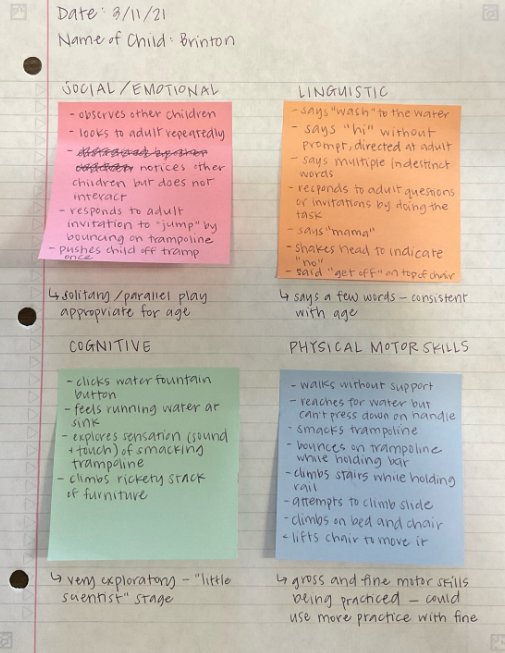 Date: 3/11/21
Name of Child: Brinton
SOCIAL/EMOTIONAL
- observes other children
- looks to adult repeatedly
- notices other
children but does not
interact
- responds to adult
invitation to "jump" by
bouncing on trampoline
- pushes child off tramp
once
↳ solitary/parallel play
appropriate for age
LINGUISTIC
- says "wash" to the water
- says "hi" without
prompt, directed at adult
- says multiple indestinct
words
- responds to adult questions
or invitations by doing the
task
- says "mama"
- shakes head to indicate
"no"
- said "get off" on top of chair
↳ says a few words – consistent
with age
COGNITIVE
- clicks water fountain
button
- feels running water at
sink
- explores sensation (sound
+ touch) of smacking
trampoline
- climbs rickety stack
of furniture
↳ very exploratory – "little
scientist" stage
PHYSICAL MOTOR SKILLS
- walks without support
- reaches for water but
can't press down on handle
- smacks trampoline
- bounces on trampoline
while holding bar
- climbs stairs while holding
rail
- attempts to climb slide
- climbs on bed and chair
- lifts chair to move it
↳ gross and fine motor skills
being practiced – could
use more practice with fine